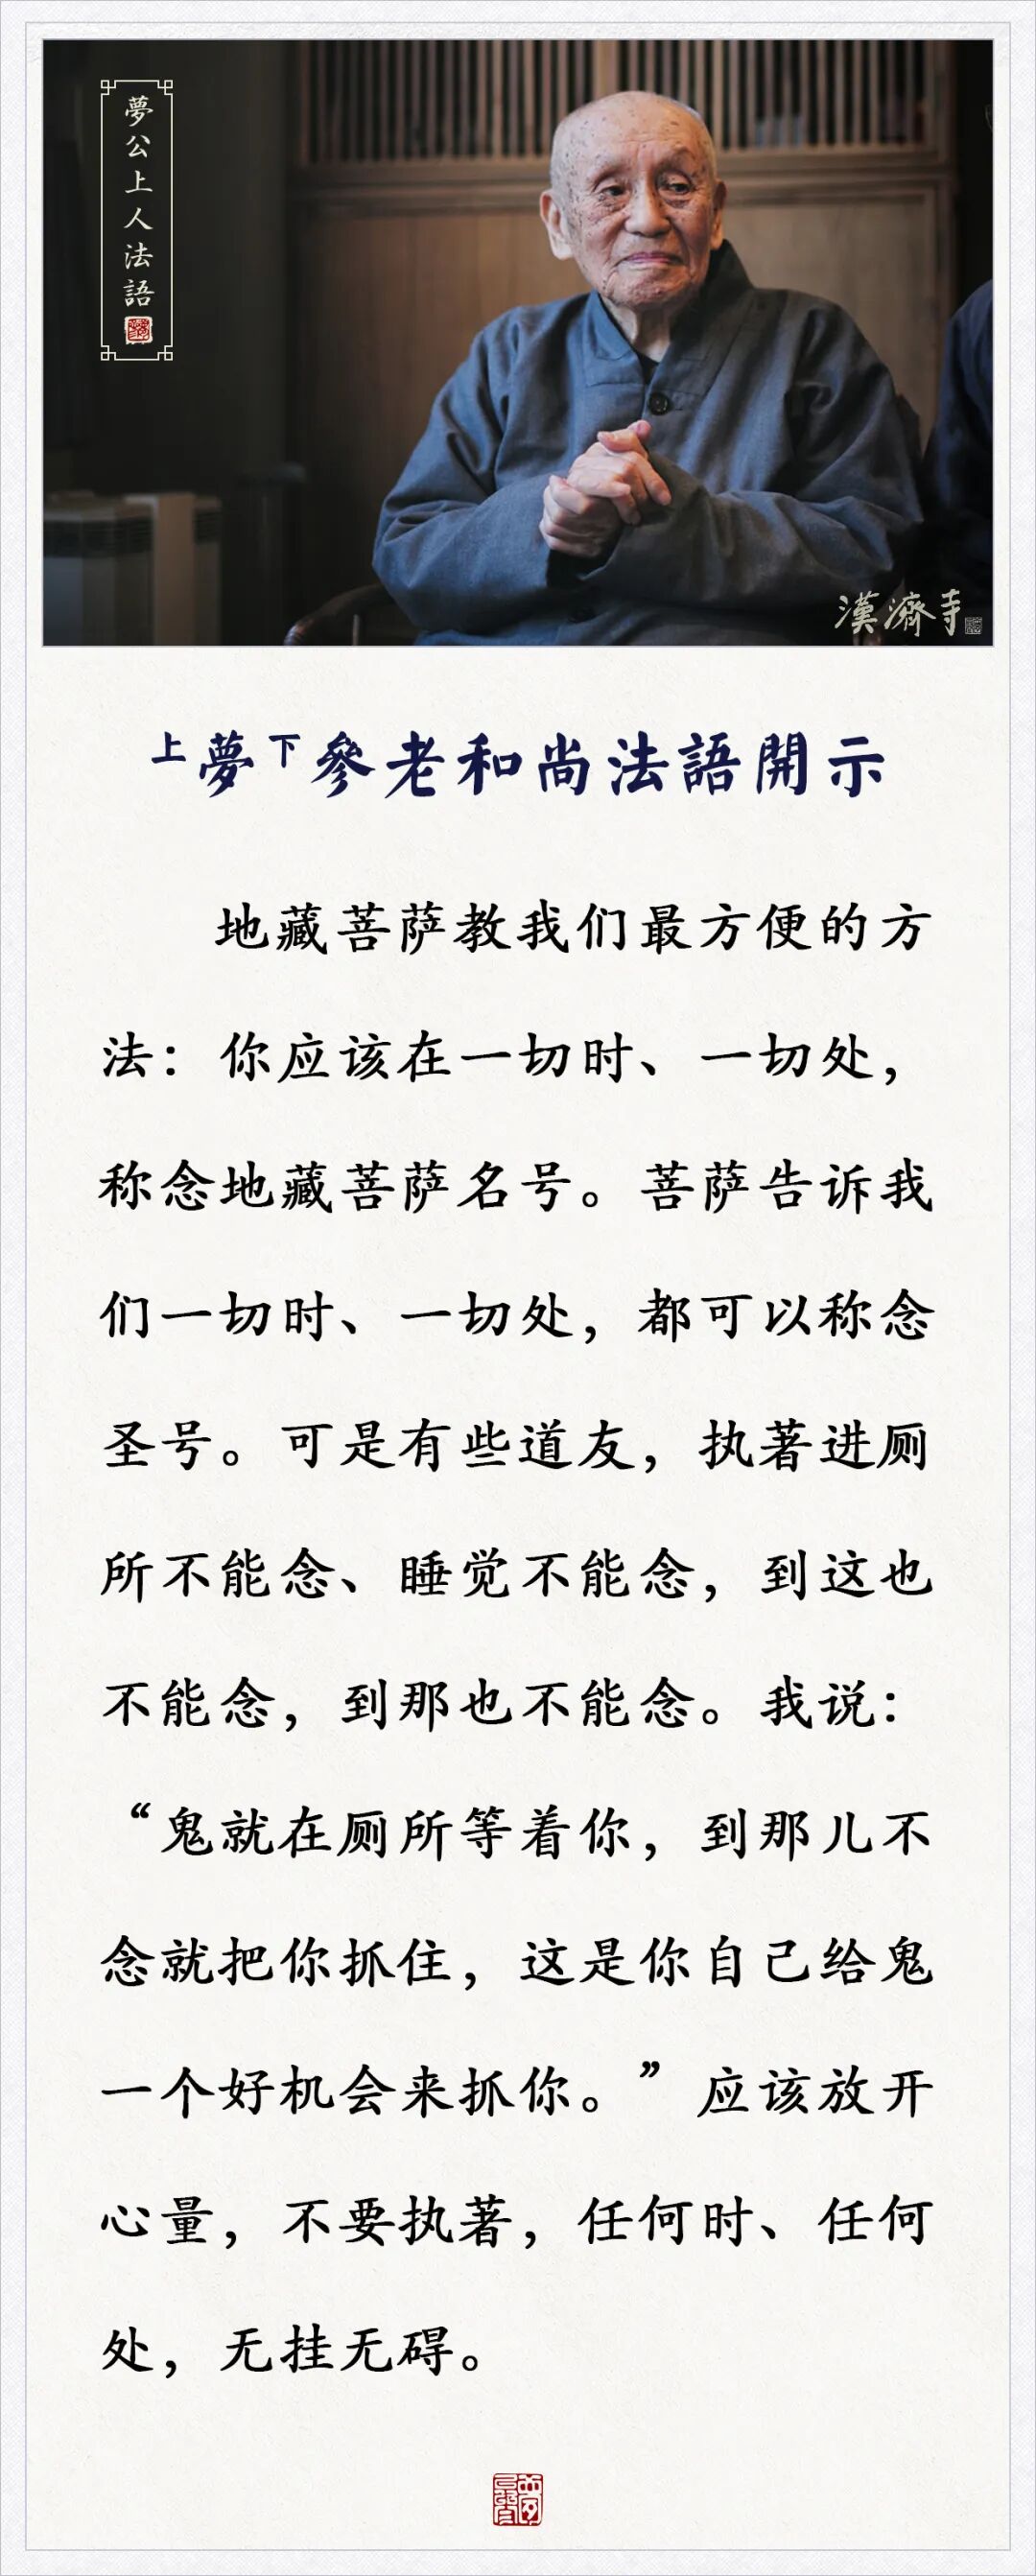 夢公上人法語
漢濟寺
上夢下參老和尚法語開示
地藏菩萨教我们最方便的方
法：你应该在一切时、一切处，
称念地藏菩萨名号。菩萨告诉我
们一切时、一切处，都可以称念
圣号。可是有些道友，执著进厕
所不能念、睡觉不能念，到这也
不能念，到那也不能念。我说：
“鬼就在厕所等着你，到那儿不
念就把你抓住，这是你自己给鬼
一个好机会来抓你。”应该放开
心量，不要执著，任何时、任何
处，无挂无碍。